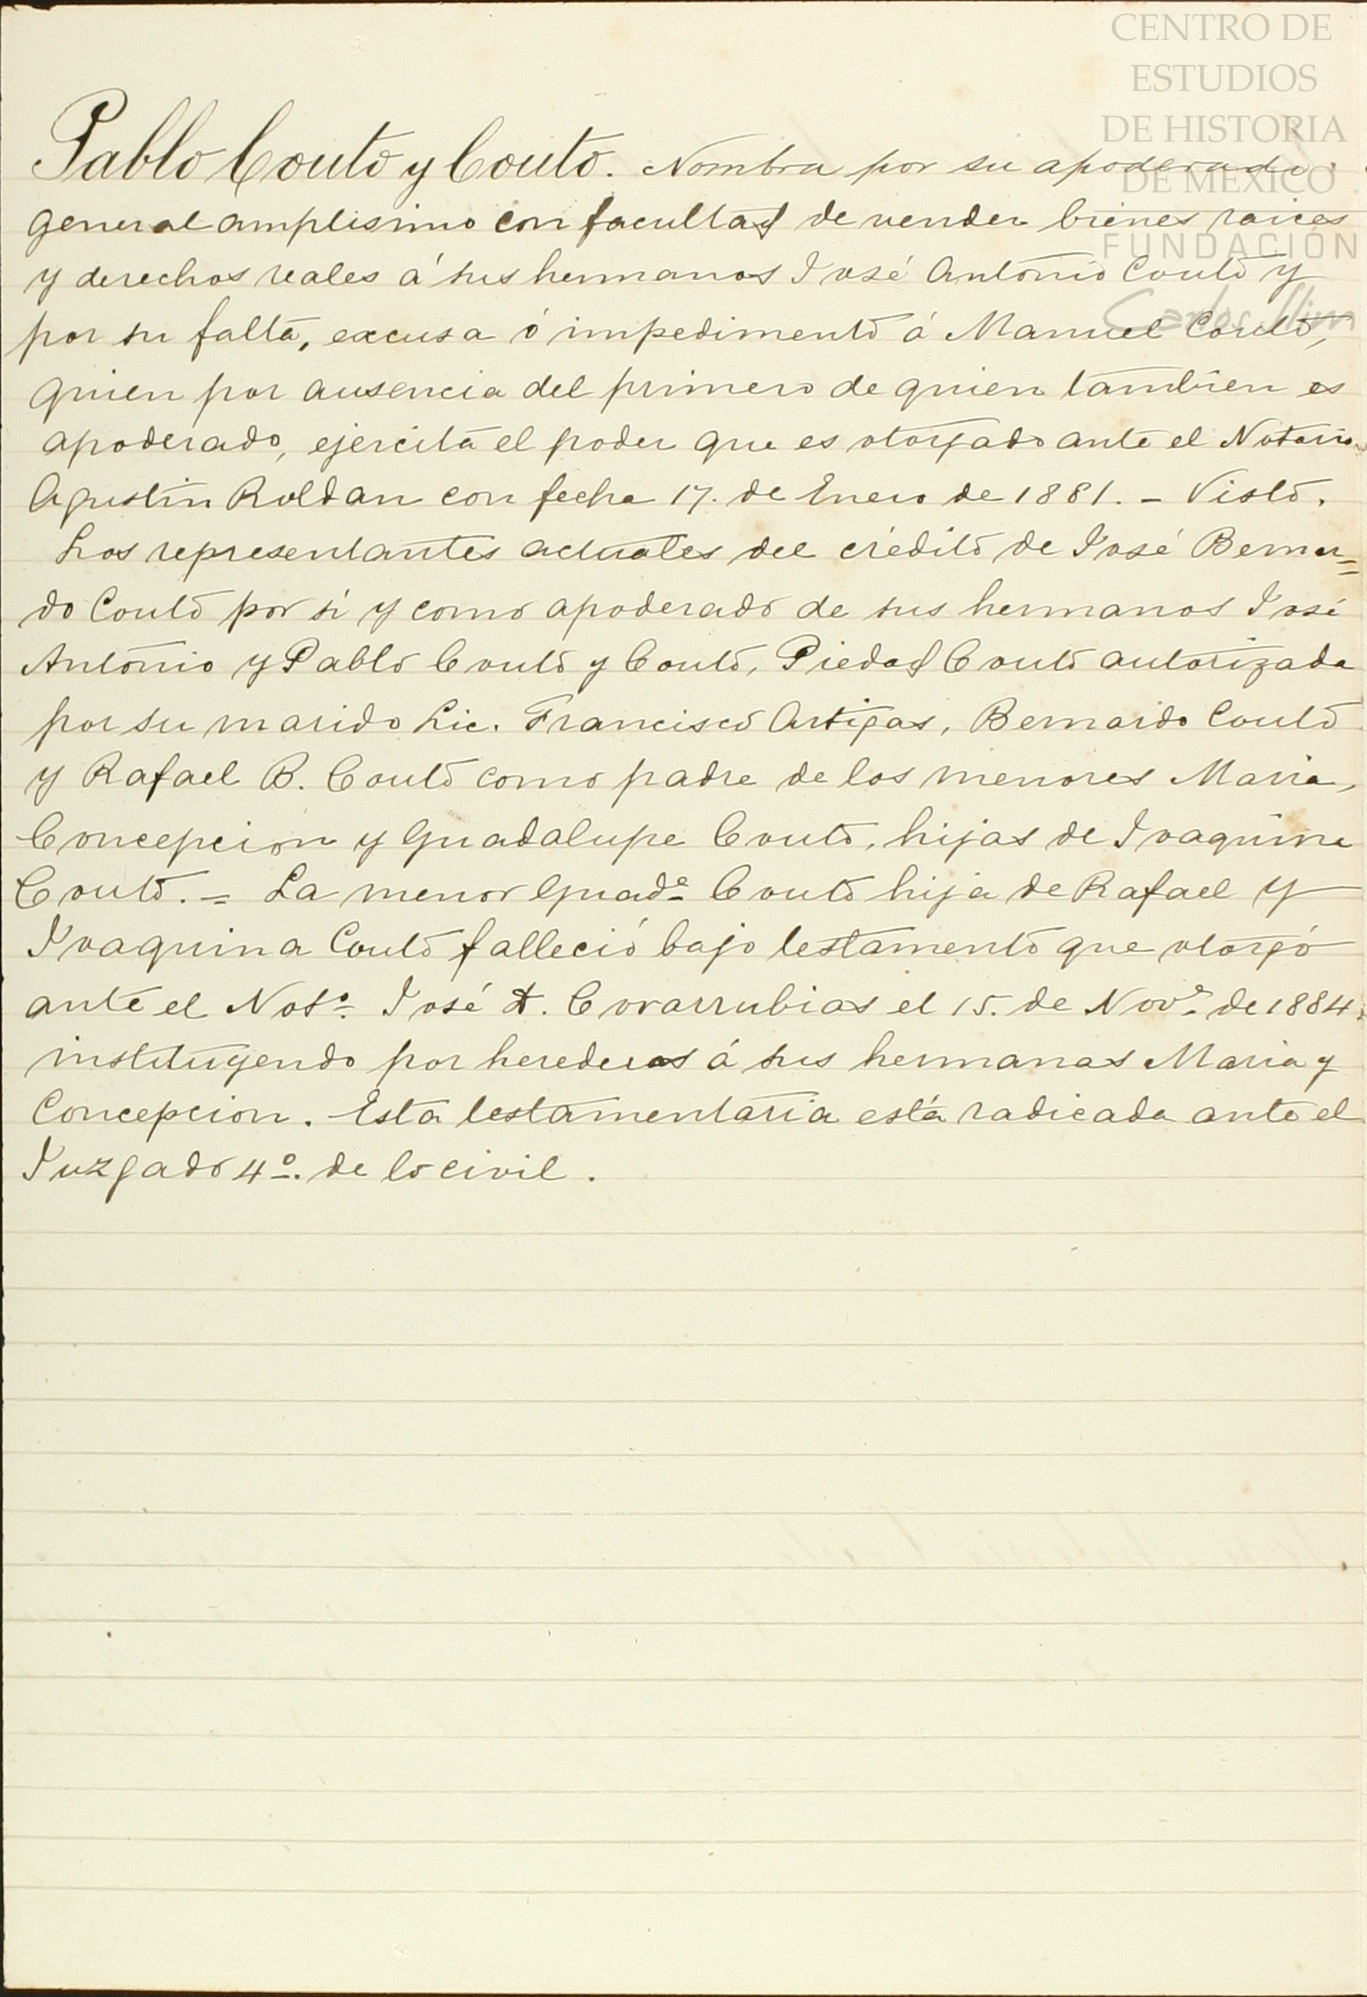 CENTRO DE
ESTUDIOS
DE HISTORIA
DE MEXICO
FUNDACIÓN
Carlos Slim
Pablo Couto y Couto. Nombra por su apoderado
general amplisimo con facultad de vender bienes raices
y derechos reales á sus hermanos José Antonio Couto y
por su falta, excusa ó impedimento á Manuel Couto,
quien por ausencia del primero de quien tambien es
apoderado, ejercita el poder que es otorgado ante el Notario
Agustin Roldan con fecha 17. de Enero de 1881. - Visto.
Los representantes actuales del crédito de José Bernar=
do Couto por si y como apoderado de sus hermanos José
Antonio y Pablo Couto y Couto, Piedad Couto autorizada
por su marido Lic. Francisco Artigas, Bernardo Couto
y Rafael B. Couto como padre de los menores Maria,
Concepcion y Guadalupe Couto, hijas de Joaquina
Couto. = La menor Guad.e Couto hija de Rafael y
Joaquina Couto falleció bajo testamento que otorgó
ante el Not.o José A. Covarrubias el 15. de Nov.e de 1884.
instituyendo por herederas á sus hermanas Maria y
Concepcion. Esta testamentaria está radicada ante el
Juzgado 4o. de lo civil.